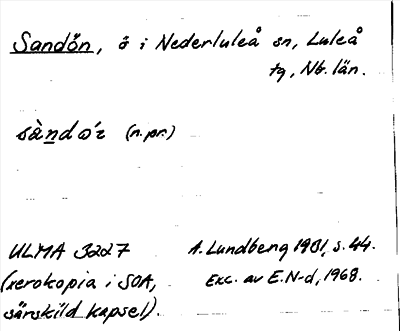 Sandön, ö i Nederluleå sn, Luleå
tg, Nb. län.
(n.pr.)
ULMA 3227
(xerokopia i SOA,
särskild kapsel).
A. Lundberg 1931, s. 44.
Exc. av E.N-d, 1968.